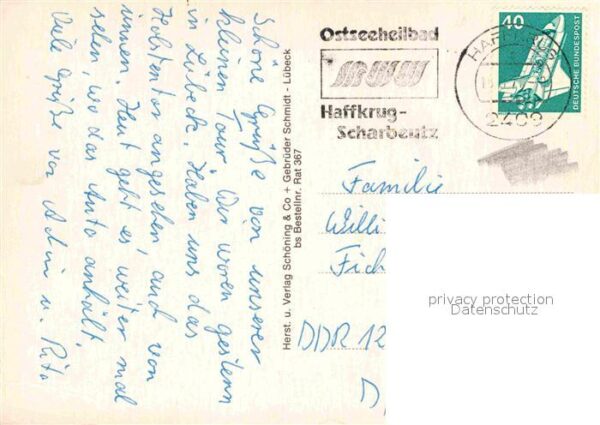 Schöne Grüße von unserer
kleinen Tour. Wir waren gestern
in Lübeck. Haben uns das
Holstentor angesehen, auch von
innen. Heut geht es weiter mal
sehen, wo das Auto anhält.
Viele Grüße von Achim u. Rita
Herst. u. Verlag Schöning & Co + Gebrüder Schmidt - Lübeck
bs Bestellnr. Rat 367
Ostseeheilbad
Haffkrug-
Scharbeutz
HAFFKRUG
2409
40
DEUTSCHE BUNDESPOST
Familie
Willi
Fich
DDR 12
privacy protection
Datenschutz